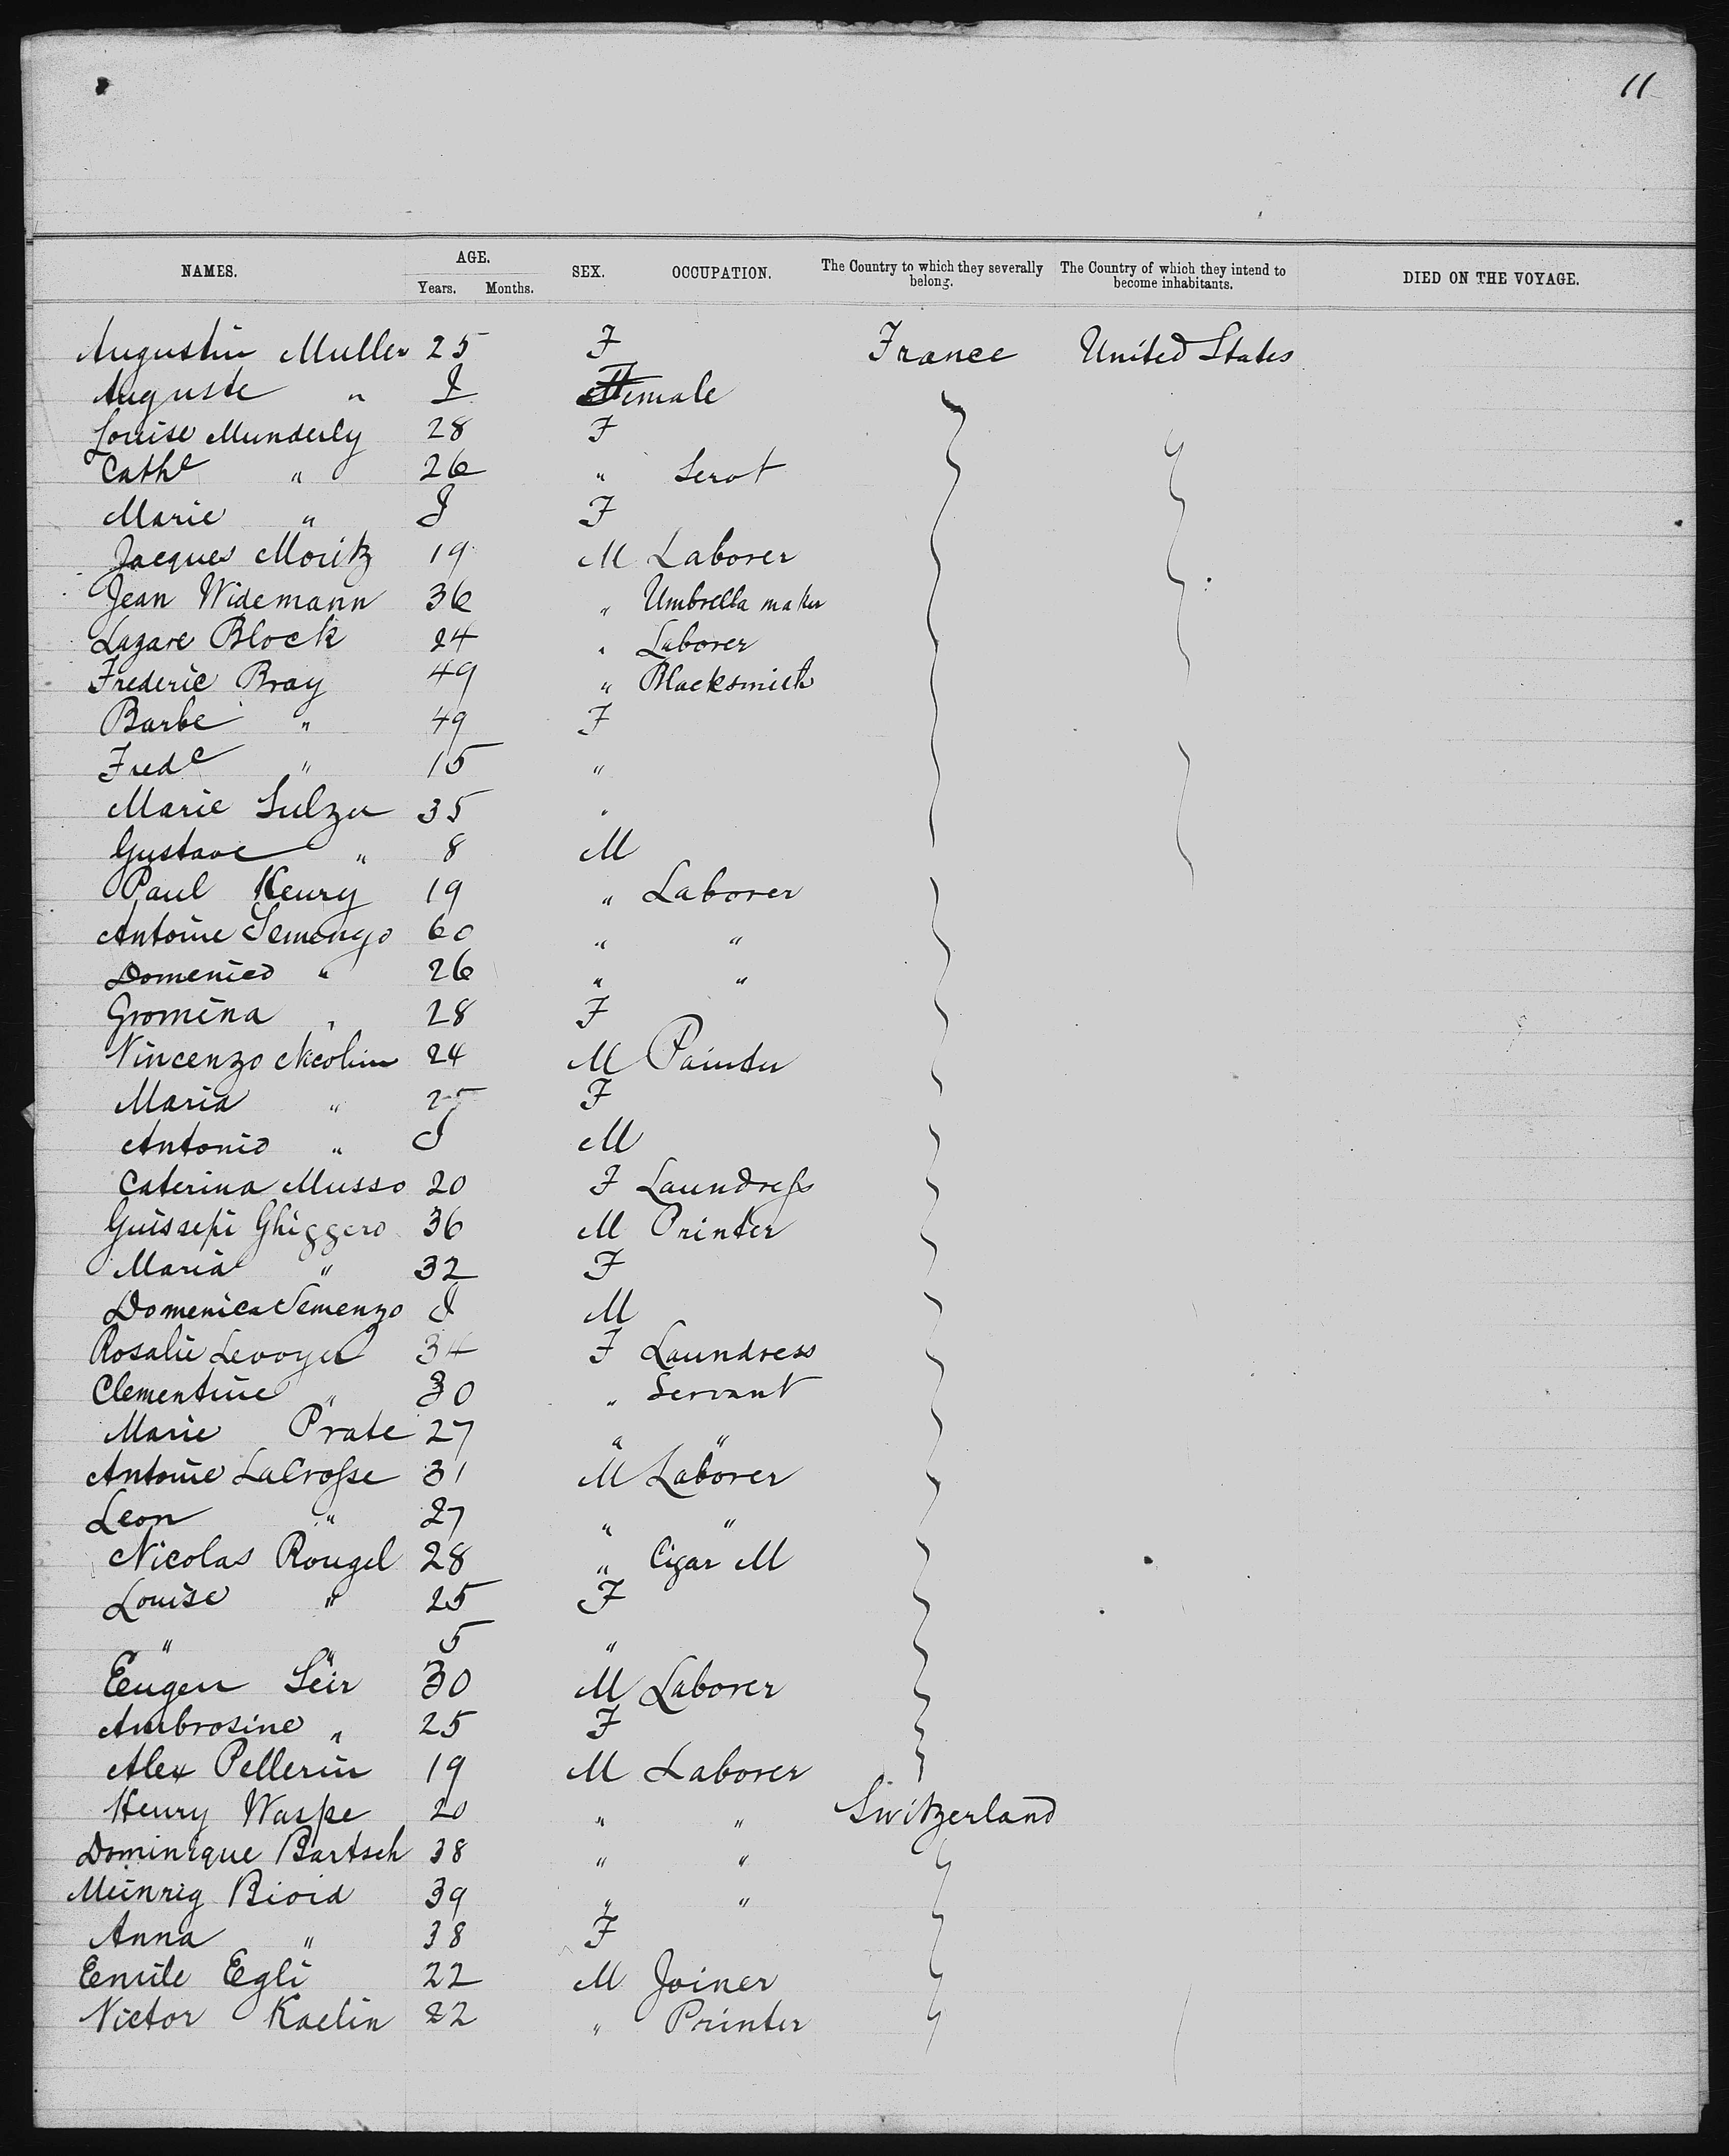 11
NAMES. AGE. SEX. OCCUPATION. The Country to which they severally belong. The Country of which they intend to become inhabitants. DIED ON THE VOYAGE.
Years. Months.
Augustin Muller 25 F France United States
Auguste " I Female
Louise Munderly 28 F
Cathe " 26 " Servt
Marie " I F
Jacques Moritz 19 M Laborer
Jean Widemann 36 " Umbrella maker
Lazare Block 24 " Laborer
Frederic Bray 49 " Blacksmith
Barbe " 49 F
Fredc " 15 "
Marie Sulzer 35 "
Gustave " 8 M
Paul Henry 19 " Laborer
Antoine Semenzo 60 " "
Domenico " 26 " "
Gromina " 28 F
Vincenzo Nicolini 24 M Painter
Maria " 25 F
Antonio " I M
Caterina Musso 20 F Laundress
Guissepi Ghiggero 36 M Printer
Maria " 32 F
Domenica Semenzo I M
Rosalie Levoyer 34 F Laundress
Clementine " 30 " Servant
Marie Prate 27 " "
Antoine LaCrosse 31 M Laborer
Leon " 27 " "
Nicolas Rougel 28 " Cigar M
Louise " 25 F
" " 5 "
Eugen Seir 30 M Laborer
Ambrosine " 25 F
Alex Pellerin 19 M Laborer
Henry Waspe 20 " " Switzerland
Dominique Bartsch 38 " "
Meinrig Bioid 39 " "
Anna " 38 F
Emile Egli 22 M Joiner
Victor Kaelin 22 " Printer